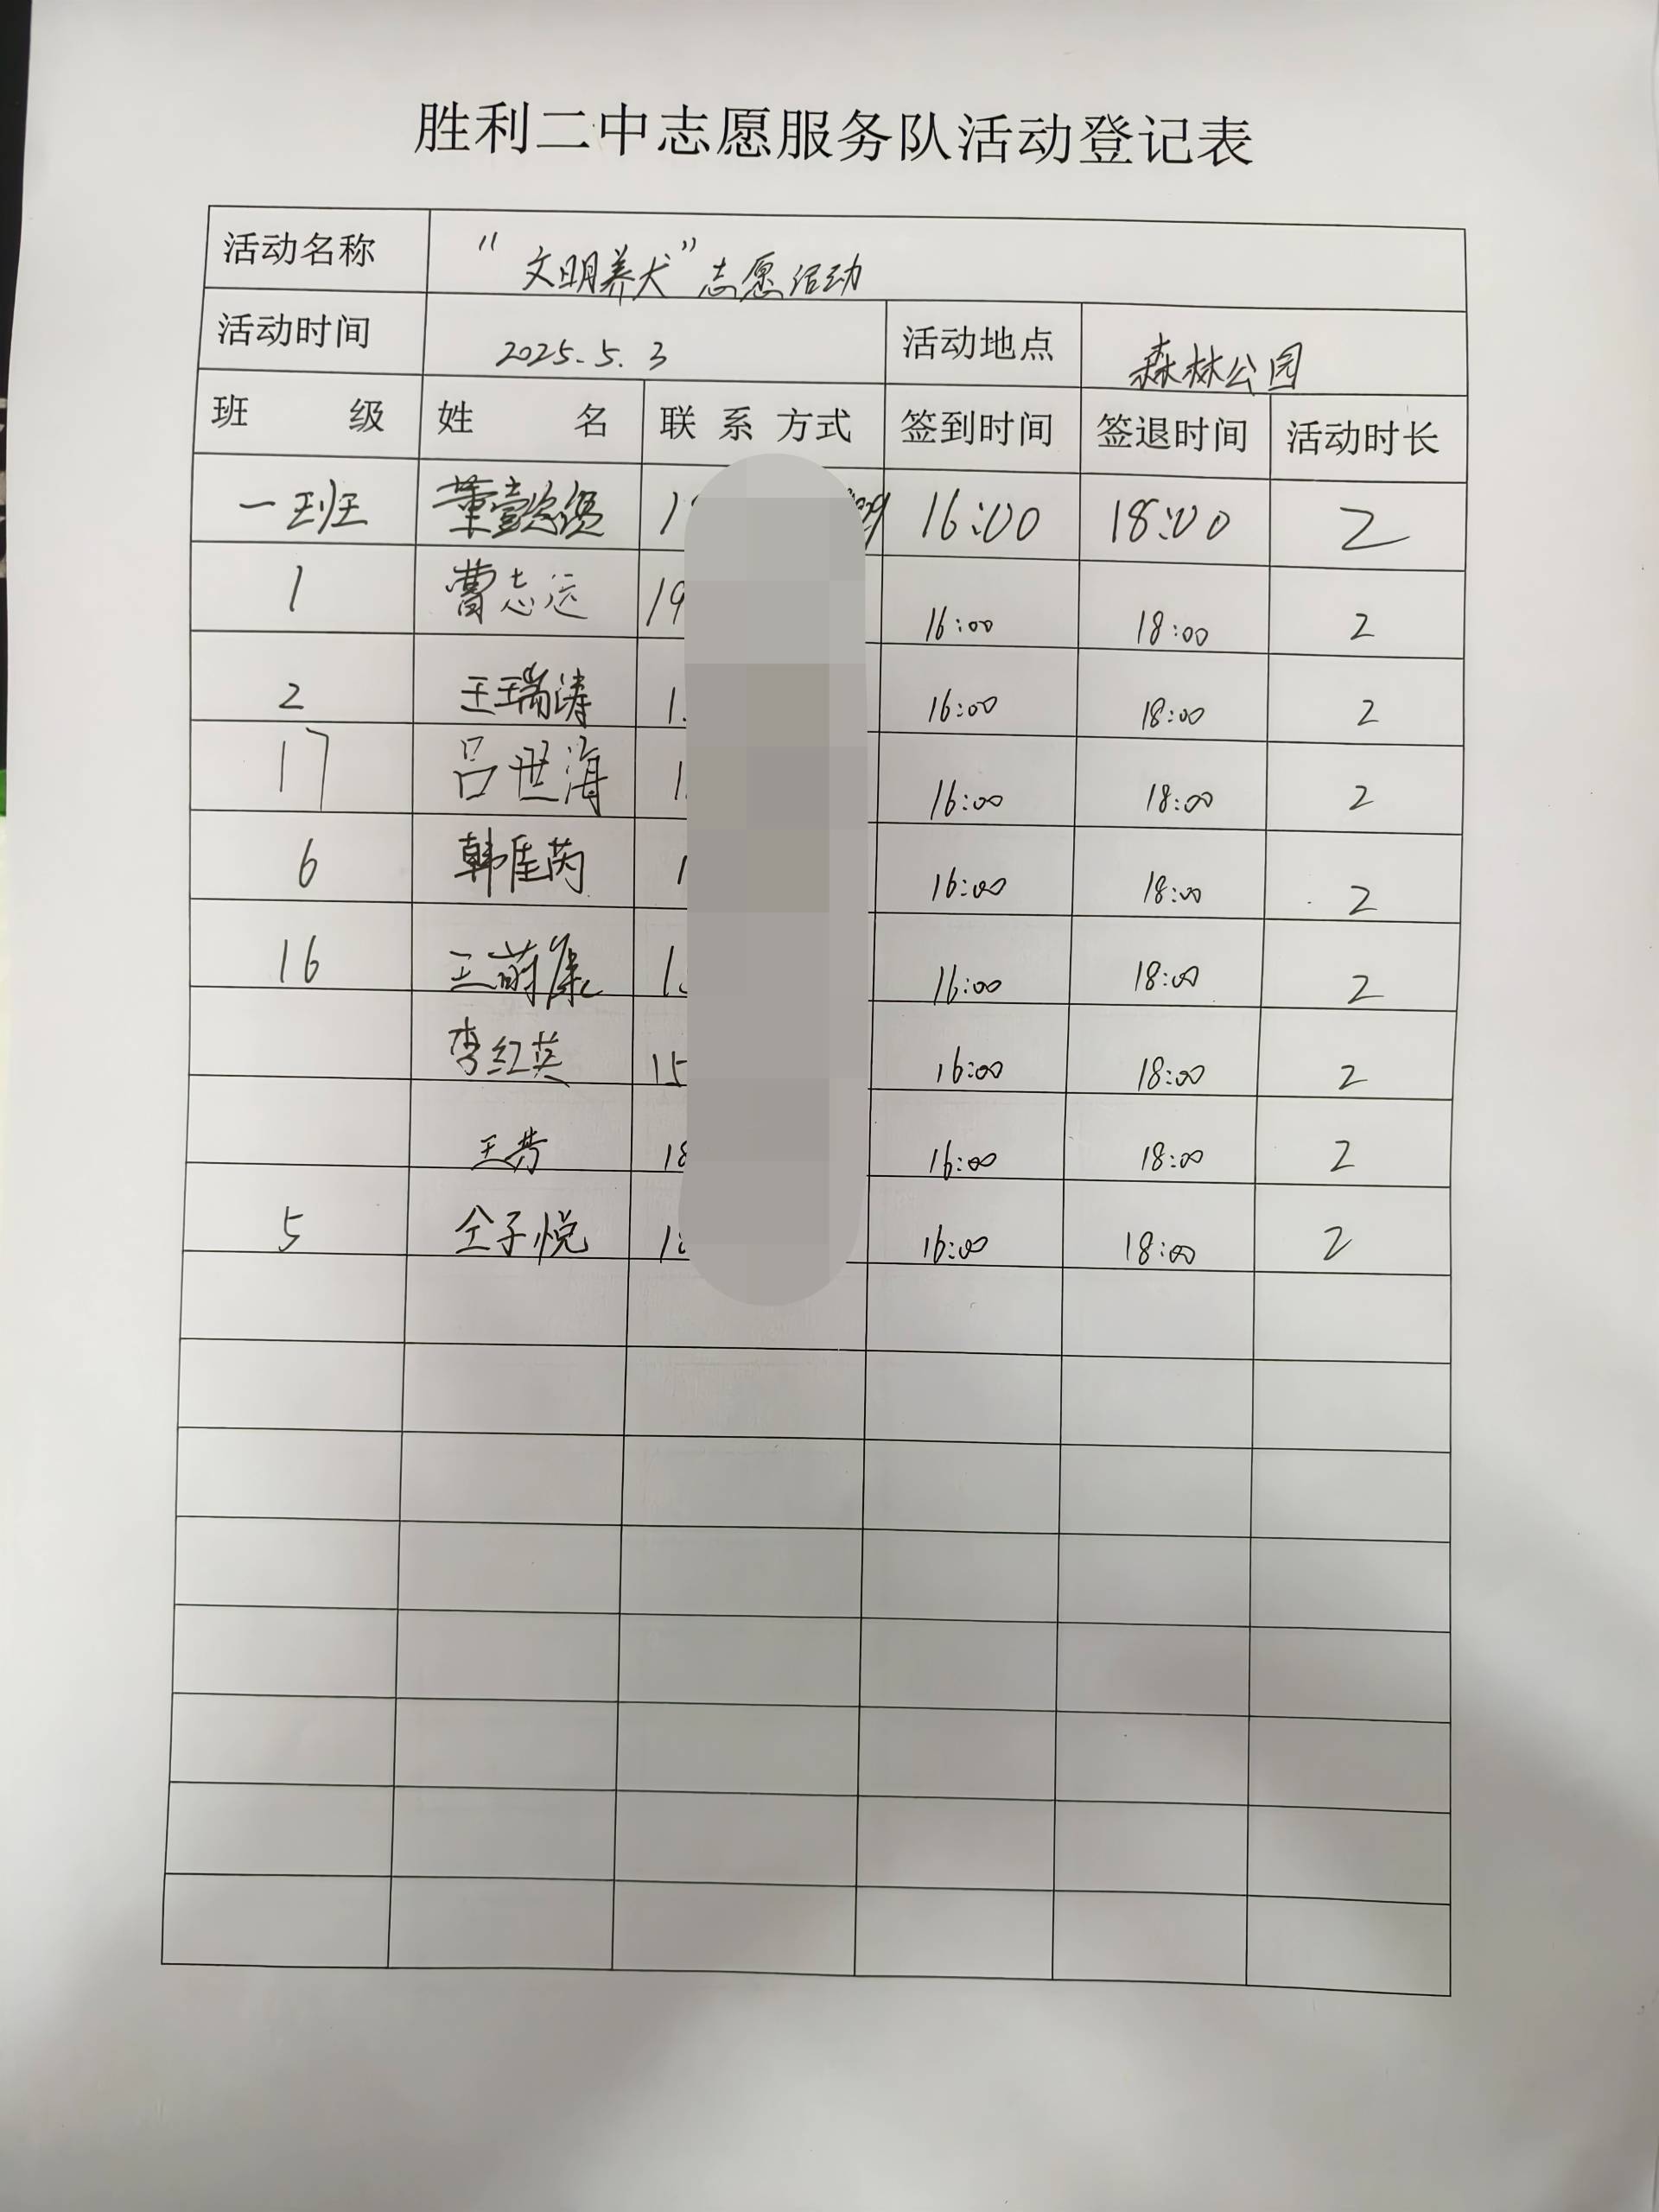 胜利二中志愿服务队活动登记表
活动名称 “文明养犬”志愿活动
活动时间 2025.5.3 活动地点 森林公园
班级 姓名 联系方式 签到时间 签退时间 活动时长
一班 董懿 1 16:00 18:00 2
1 曹志运 19 16:00 18:00 2
2 王瑞涛 1 16:00 18:00 2
17 吕世海 1 16:00 18:00 2
6 韩佳芮 1 16:00 18:00 2
16 王蔚 1 16:00 18:00 2
李红英 15 16:00 18:00 2
王芳 18 16:00 18:00 2
5 仝子悦 1 16:00 18:00 2